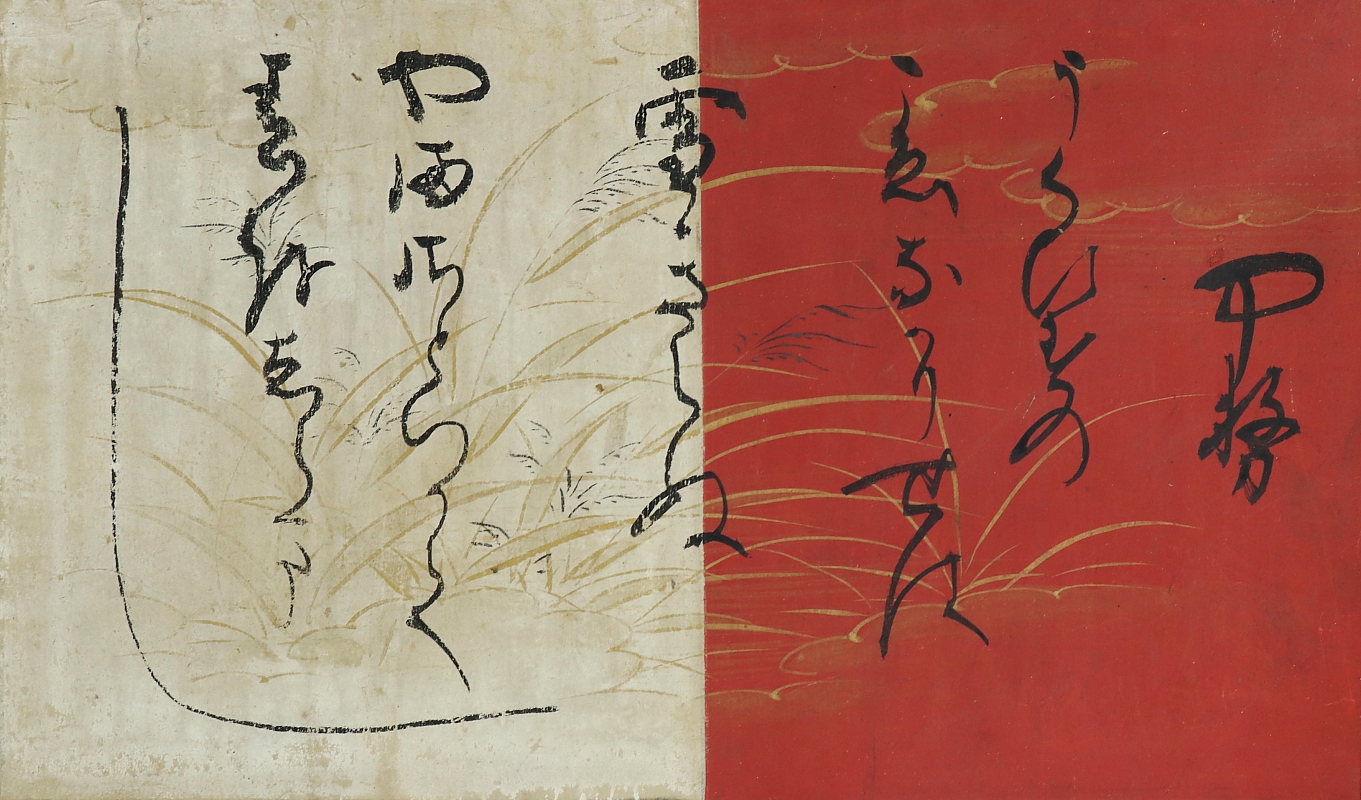 中務
うくひすの
こゑなかりせは
雪きえぬ
やまさといかて
春をしらまし